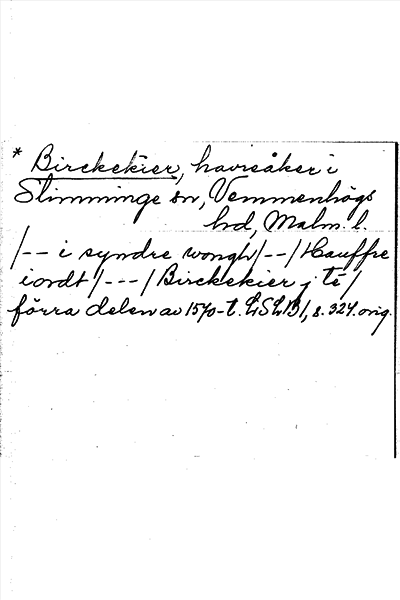 * Birckekier, havreåker i
Slimminge sn, Vemmenhögs
hrd, Malm. l.
/-- i syndre wongh/--/Hauffre
iordt/---/Birckekier j té/
förra delen av 1570-t. LSLB1, s. 324. orig.